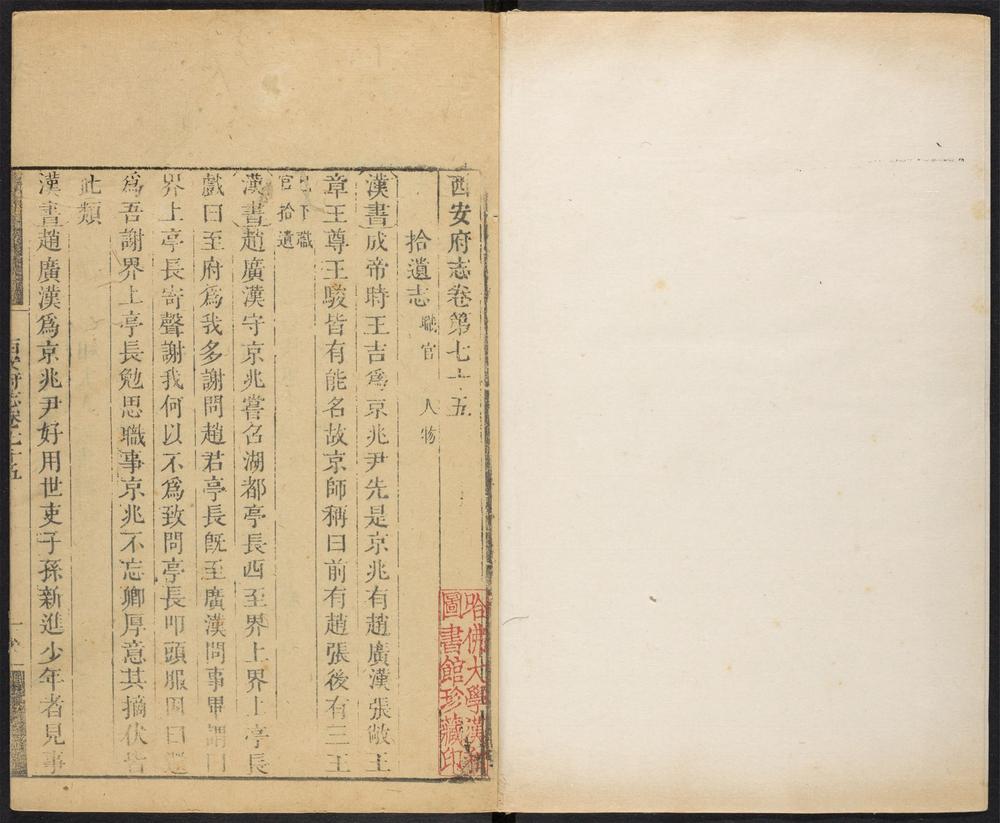 西安府志卷第七十五
拾遺志 職官 人物
漢書成帝時王吉爲京兆尹先是京兆有趙廣漢張敞王
章王尊王駿皆有能名故京師稱曰前有趙張後有三王
已下職
官拾遺
漢書趙廣漢守京兆嘗召湖都亭長西至界上界上亭長
戲曰至府爲我多謝問趙君亭長旣至廣漢問事畢謂曰
界上亭長寄聲謝我何以不爲致問亭長叩頭服因曰還
爲吾謝界上亭長勉思職事京兆不忘卿厚意其摘伏皆
此類
漢書趙廣漢爲京兆尹好用世吏子孫新進少年者見事
西安府志卷七十五
哈佛大學漢和
圖書館珍藏印